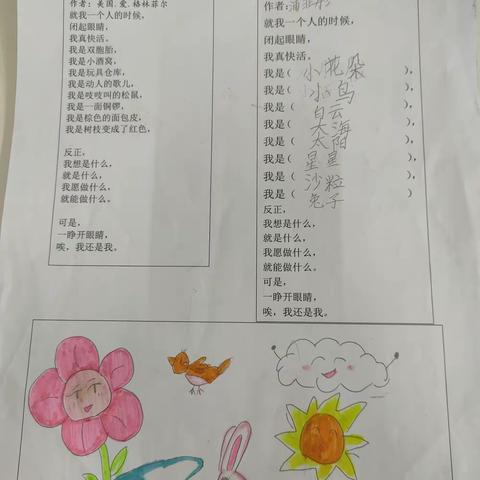 作者：美国.爱.格林菲尔
就我一个人的时候，
闭起眼睛，
我真快活。
我是双胞胎，
我是小酒窝，
我是玩具仓库，
我是动人的歌儿，
我是吱吱叫的松鼠，
我是一面铜锣，
我是棕色的面包皮，
我是树枝变成了红色，
反正，
我想是什么，
就是什么，
我愿做什么，
就能做什么。
可是，
一睁开眼睛，
唉，我还是我。
作者:
就我一个人的时候，
闭起眼睛，
我真快活。
我是（小花朵），
我是（小鸟），
我是（白云），
我是（大海），
我是（太阳），
我是（星星），
我是（沙粒），
我是（兔子）
反正，
我想是什么，
就是什么，
我愿做什么，
就能做什么。
可是，
一睁开眼睛，
唉，我还是我。